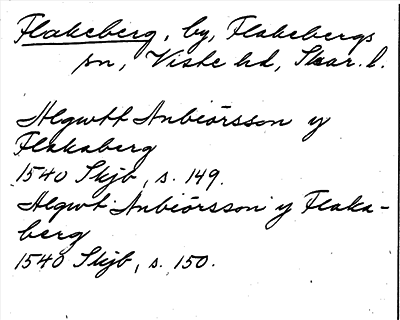 Flakeberg, by, Flakebergs
sn, Viste hd, Skar. l.
Algwtt Anbiörsson y
Flakaberg
1540 Skjb, s. 149.
Algwt Anbiörsson y Flaka-
berg
1540 Skjb, s. 150.